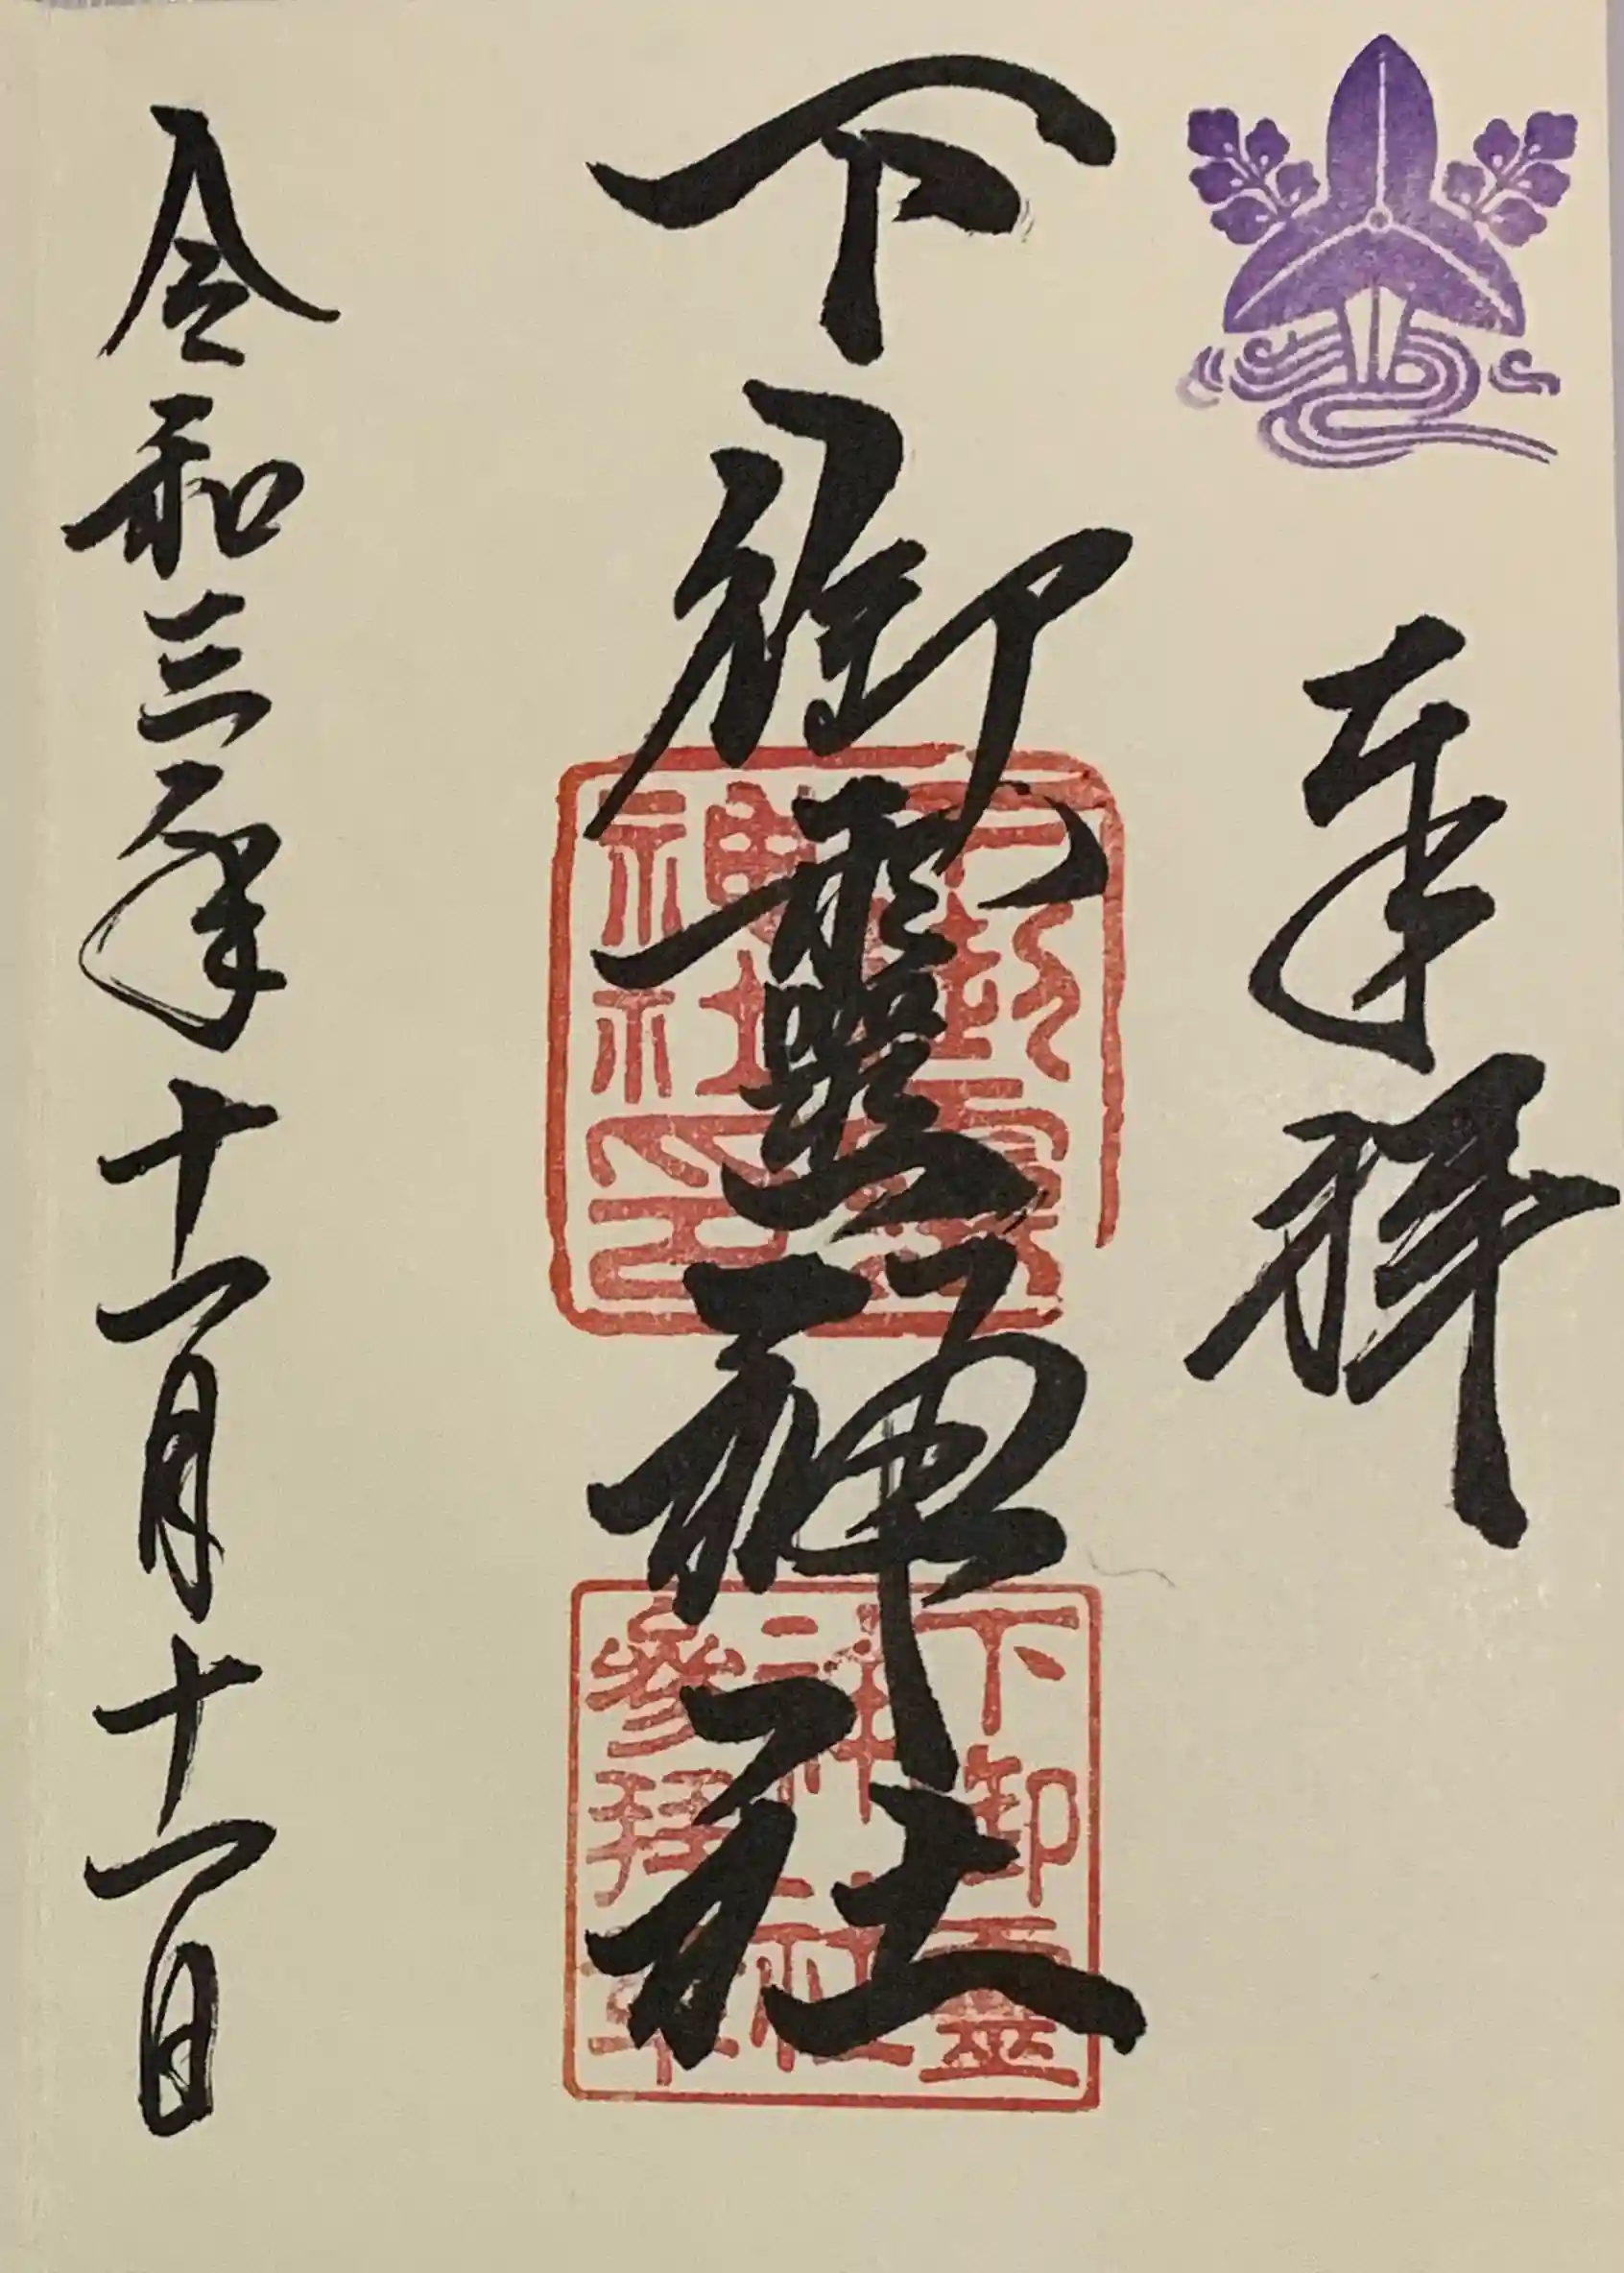 奉拝
下御靈神社
下御霊
神社
参拝章
下御霊
神社印
令和三年十一月十一日